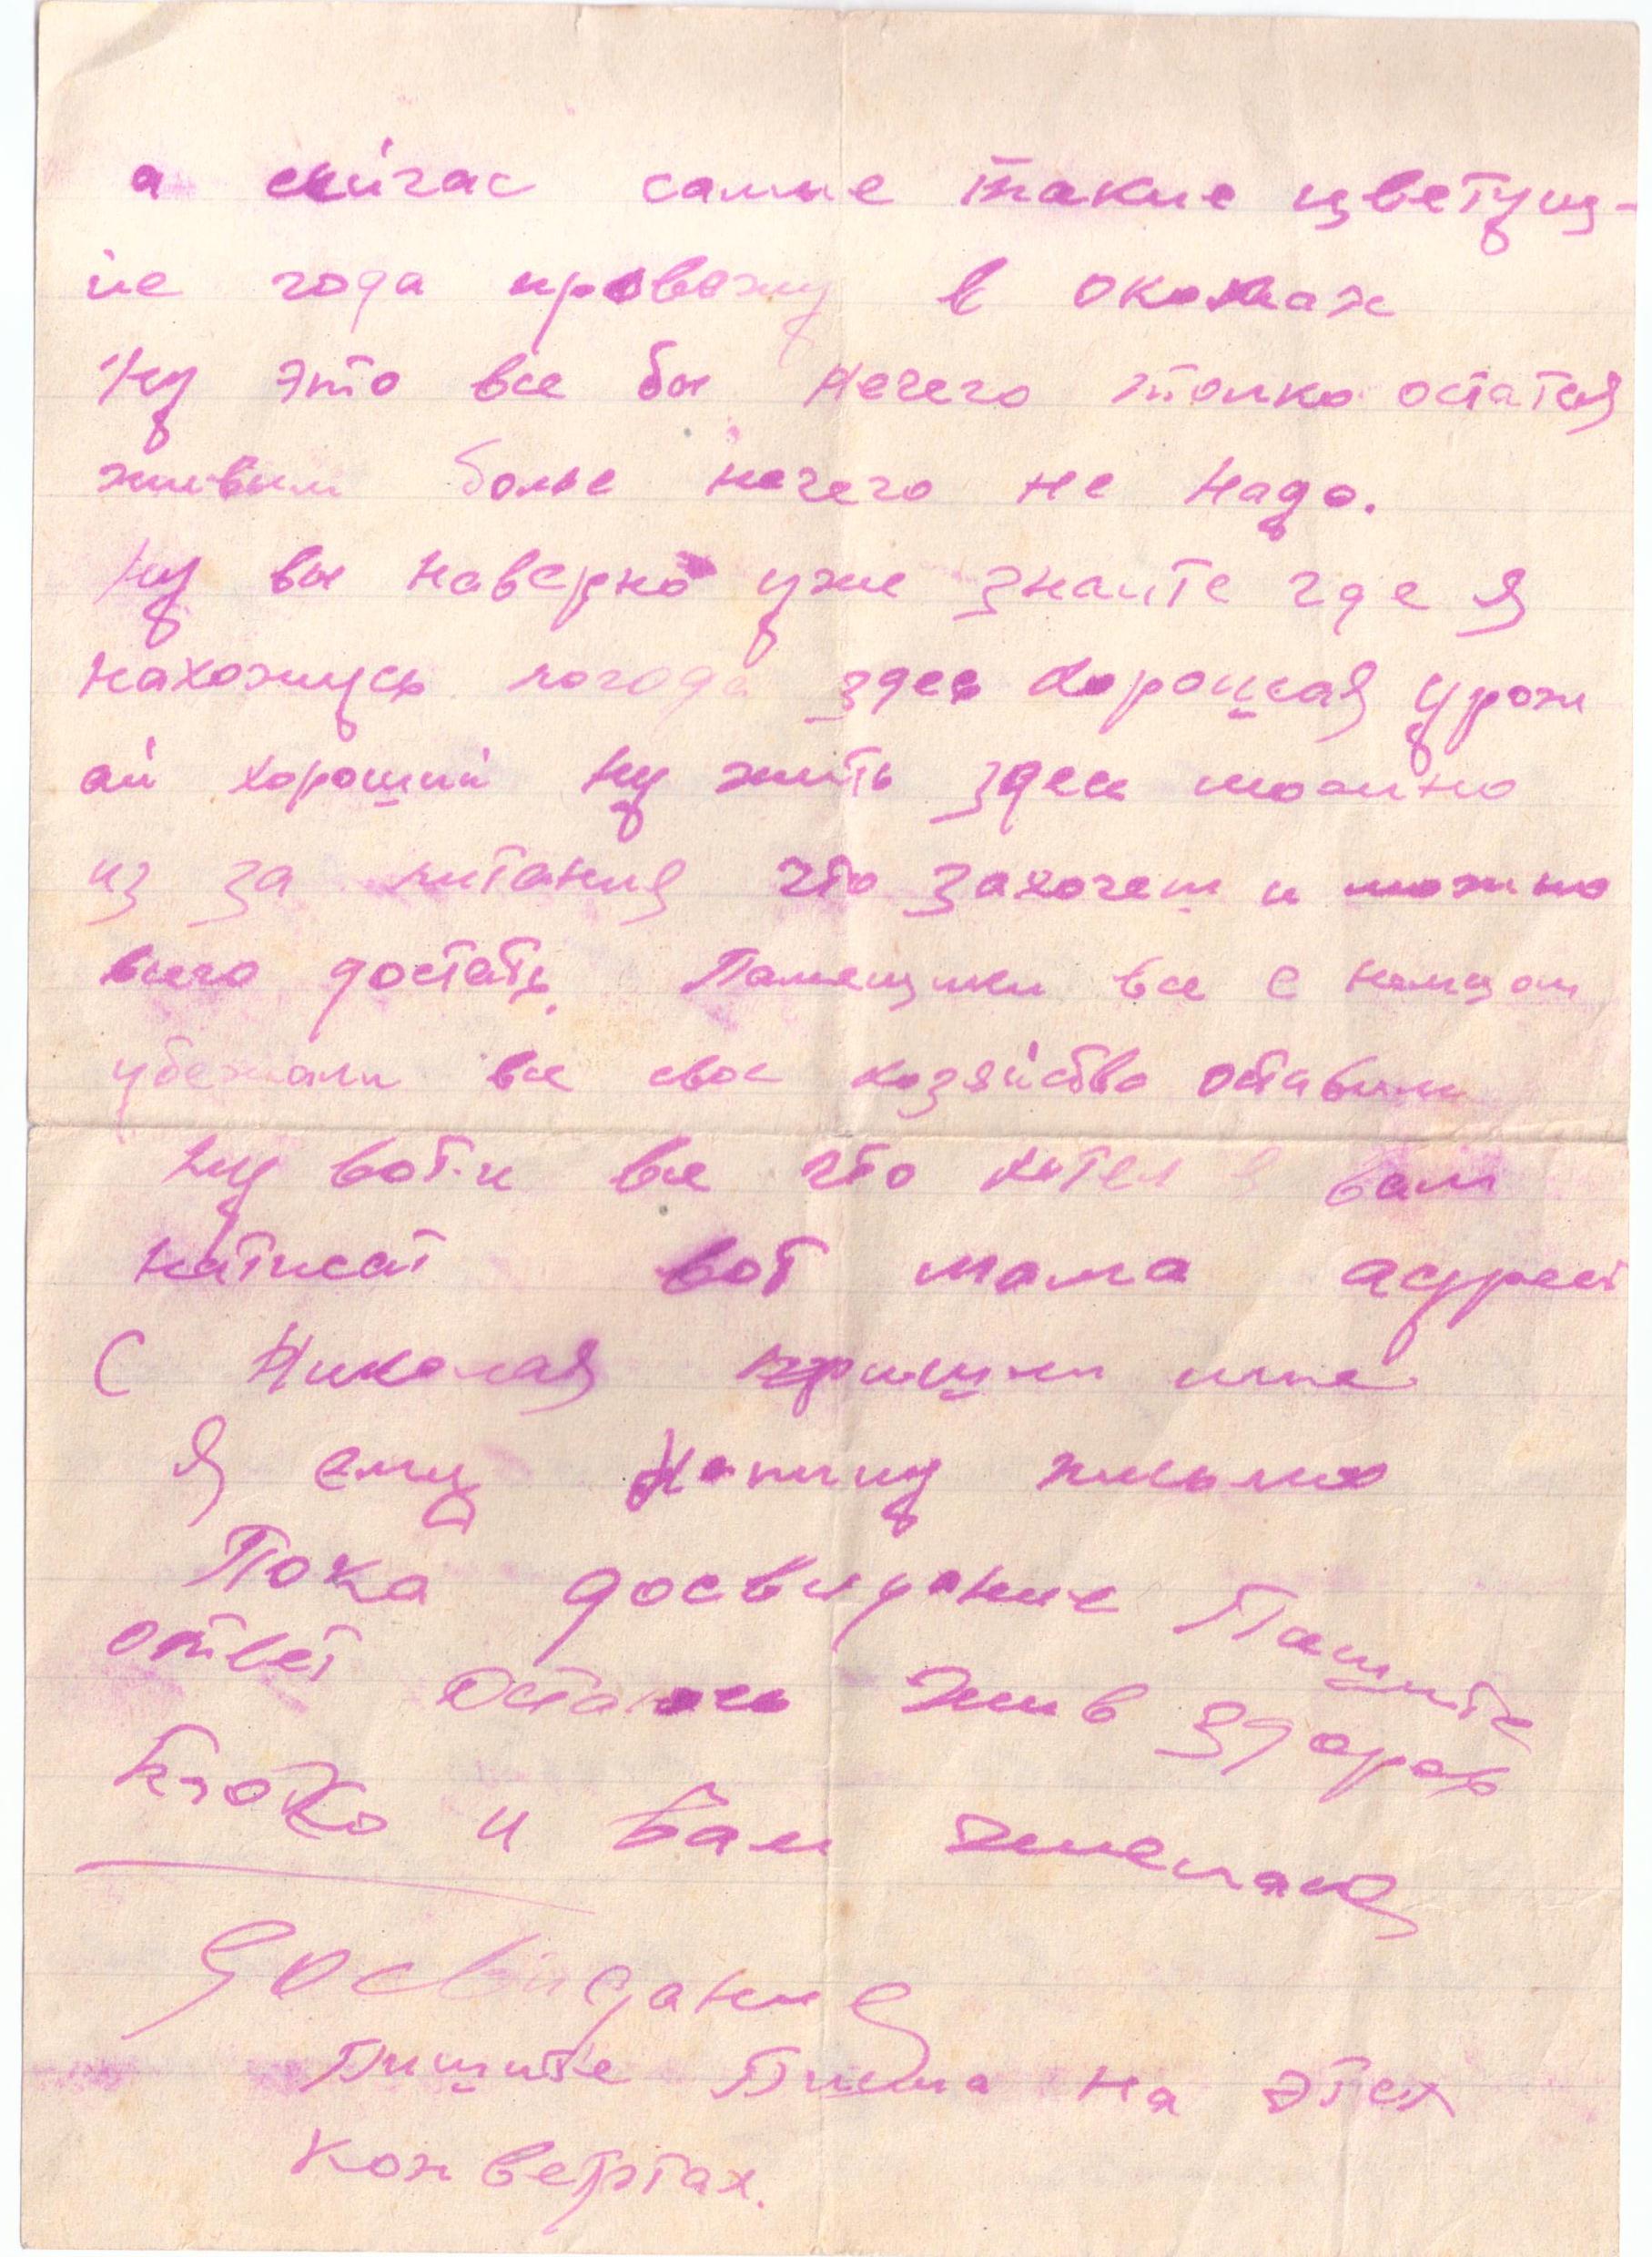 а сейчас самые такие цветущ-
ие года провожу в окопах
Ну это все бы нечего толко остатся
живым более нечего не надо.
Ну вы наверно уже знаите где я
нахожусь погода здесь хорошая урож
ай хороший ну жить здесь можно
из за питания что захочеш и можно
всего достать. Памещики все с немцом
убежали все свое хозяйство оставили
Ну вот и все что хотел я вам
написат вот мама адрест
с Николая пришли мне
Я ему напишу письмо
Пока досвидание Пашите
ответ остаюсь жив здоров
и Вам желаю
Досвидание
Пишите писма на этех
конвертах.